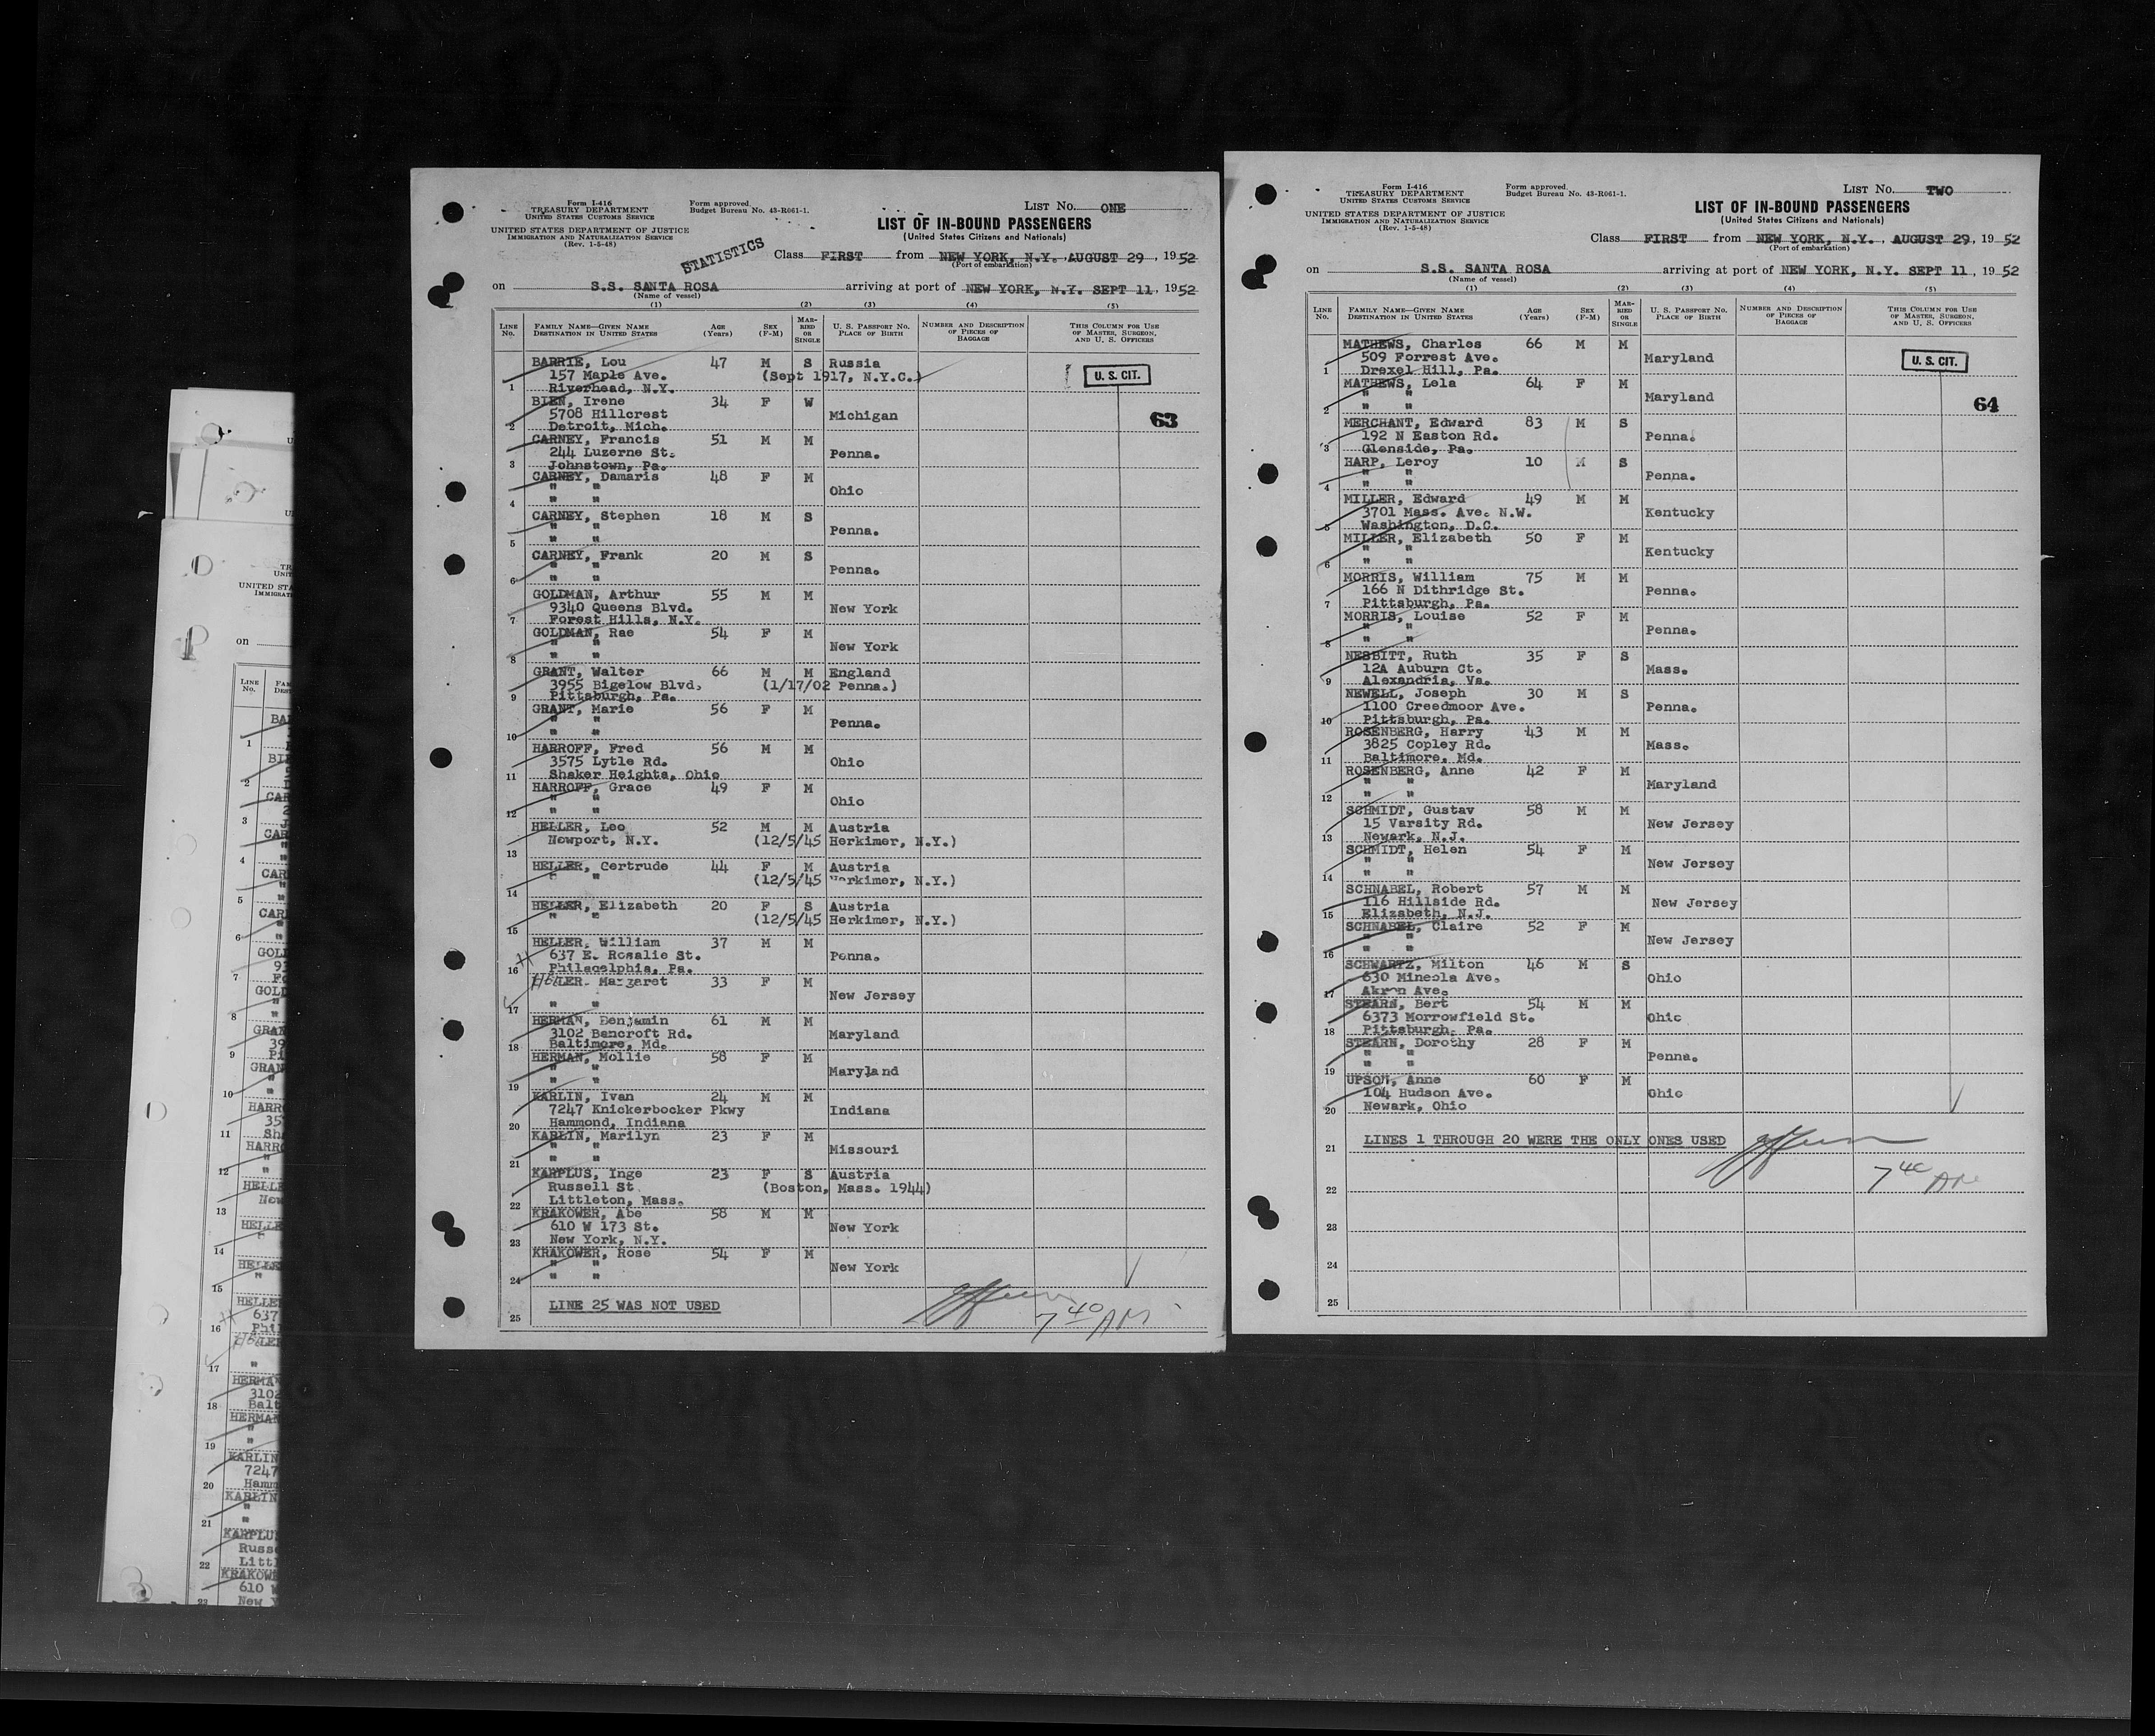 Form I-416
TREASURY DEPARTMENT
UNITED STATES CUSTOMS SERVICE
Form approved.
Budget Bureau No. 43-R061-1.
LIST No. ONE
UNITED STATES DEPARTMENT OF JUSTICE
IMMIGRATION AND NATURALIZATION SERVICE
(Rev. 1-5-48)
LIST OF IN-BOUND PASSENGERS
(United States Citizens and Nationals)
STATISTICS
Class FIRST from NEW YORK, N.Y. , AUGUST 29 , 1952
(Port of embarkation)
on S.S. SANTA ROSA arriving at port of NEW YORK, N.Y. SEPT 11, 1952
(Name of vessel)
(1) (2) (3) (4) (5)
LINE No. FAMILY NAME—GIVEN NAME DESTINATION IN UNITED STATES AGE (Years) SEX (F-M) MARRIED OR SINGLE U. S. PASSPORT NO. PLACE OF BIRTH NUMBER AND DESCRIPTION OF PIECES OF BAGGAGE THIS COLUMN FOR USE OF MASTER, SURGEON, AND U. S. OFFICERS
BARRIE, Lou 47 M S Russia
157 Maple Ave. (Sept 1917, N.Y.C.) U. S. CIT.
1 Riverhead, N.Y.
BIEN, Irene 34 F W
5708 Hillcrest Michigan 63
2 Detroit, Mich.
CARNEY, Francis 51 M M
244 Luzerne St. Penna.
3 Johnstown, Pa.
CARNEY, Damaris 48 F M
" " Ohio
4 " "
CARNEY, Stephen 18 M S
" " Penna.
5
CARNEY, Frank 20 M S
" " Penna.
6 " "
GOLDMAN, Arthur 55 M M
9340 Queens Blvd. New York
7 Forest Hills, N.Y.
GOLDMAN, Rae 54 F M
" " New York
8 " "
GRANT, Walter 66 M M England
3955 Bigelow Blvd. (1/17/02 Penna.)
9 Pittsburgh, Pa.
GRANT, Marie 56 F M
" " Penna.
10 " "
HARROFF, Fred 56 M M
3575 Lytle Rd. Ohio
11 Shaker Heights, Ohio
HARROFF, Grace 49 F M
" " Ohio
12 " "
HELLER, Leo 52 M M Austria
Newport, N.Y. (12/5/45 Herkimer, N.Y.)
13
HELLER, Gertrude 44 F M Austria
" " (12/5/45 Herkimer, N.Y.)
14
HELLER, Elizabeth 20 F S Austria
" " (12/5/45 Herkimer, N.Y.)
15
HELLER, William 37 M M
637 E. Rosalie St. Penna.
16 Philadelphia, Pa.
HELLER, Margaret 33 F M
New Jersey
17 " "
HERMAN, Benjamin 61 M M
3102 Bancroft Rd. Maryland
18 Baltimore, Md.
HERMAN, Mollie 58 F M
" " Maryland
19 " "
KARLIN, Ivan 24 M M
7247 Knickerbocker Pkwy Indiana
20 Hammond, Indiana
KARLIN, Marilyn 23 F M
" " Missouri
21 " "
KARPLUS, Inge 23 F S Austria
Russell St. (Boston, Mass. 1944)
22 Littleton, Mass.
KRAKOWER, Abe 58 M M
610 W 173 St. New York
23 New York, N.Y.
KRAKOWER, Rose 54 F M
" " New York
24 " "
25 LINE 25 WAS NOT USED
7 40 AM
Form I-416
TREASURY DEPARTMENT
UNITED STATES CUSTOMS SERVICE
Form approved.
Budget Bureau No. 43-R061-1.
LIST No. TWO
UNITED STATES DEPARTMENT OF JUSTICE
IMMIGRATION AND NATURALIZATION SERVICE
(Rev. 1-5-48)
LIST OF IN-BOUND PASSENGERS
(United States Citizens and Nationals)
Class FIRST from NEW YORK, N.Y. , AUGUST 29, 1952
(Port of embarkation)
on S.S. SANTA ROSA arriving at port of NEW YORK, N.Y. SEPT 11, 1952
(Name of vessel)
(1) (2) (3) (4) (5)
LINE No. FAMILY NAME—GIVEN NAME DESTINATION IN UNITED STATES AGE (Years) SEX (F-M) MARRIED OR SINGLE U. S. PASSPORT NO. PLACE OF BIRTH NUMBER AND DESCRIPTION OF PIECES OF BAGGAGE THIS COLUMN FOR USE OF MASTER, SURGEON, AND U. S. OFFICERS
MATHEWS, Charles 66 M M
509 Forrest Ave. Maryland U. S. CIT.
1 Drexel Hill, Pa.
MATHEWS, Lela 64 F M
" " Maryland 64
2 " "
MERCHANT, Edward 83 M S
192 N Easton Rd. Penna.
3 Glenside, Pa.
HARP, Leroy 10 M S
" " Penna.
4 " "
MILLER, Edward 49 M M
3701 Mass. Ave. N.W. Kentucky
5 Washington, D.C.
MILLER, Elizabeth 50 F M
" " Kentucky
6 " "
MORRIS, William 75 M M
166 N Dithridge St. Penna.
7 Pittsburgh, Pa.
MORRIS, Louise 52 F M
" " Penna.
8 " "
NESBITT, Ruth 35 F S
12A Auburn Ct. Mass.
9 Alexandria, Va.
NEWELL, Joseph 30 M S
1100 Creedmoor Ave. Penna.
10 Pittsburgh, Pa.
ROSENBERG, Harry 43 M M
3825 Copley Rd. Mass.
11 Baltimore, Md.
ROSENBERG, Anne 42 F M
" " Maryland
12 " "
SCHMIDT, Gustav 58 M M
15 Varsity Rd. New Jersey
13 Newark, N.J.
SCHMIDT, Helen 54 F M
" " New Jersey
14 " "
SCHNABEL, Robert 57 M M
116 Hillside Rd. New Jersey
15 Elizabeth, N.J.
SCHNABEL, Claire 52 F M
" " New Jersey
16 " "
SCHWARTZ, Milton 46 M S
630 Mineola Ave. Ohio
17 Akron Ave.
STEARN, Bert 54 M M
6373 Morrowfield St. Ohio
18 Pittsburgh, Pa.
STEARN, Dorothy 28 F M
" " Penna.
19 " "
UPSON, Anne 60 F M
104 Hudson Ave. Ohio
20 Newark, Ohio
21 LINES 1 THROUGH 20 WERE THE ONLY ONES USED
22 7 40 AM
23
24
25